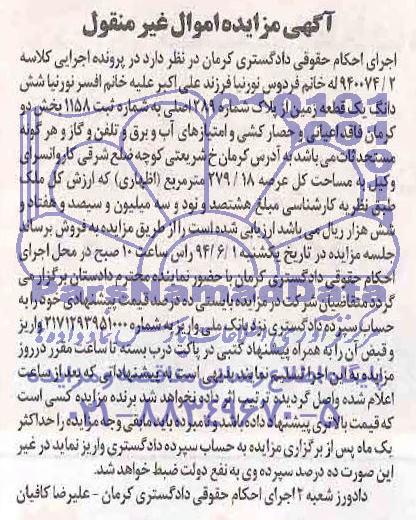 آگهی مزایده اموال غیر منقول
اجرای احکام حقوقی دادگستری کرمان در نظر دارد در پرونده اجرایی کلاسه
۹۴۰۰۷۴/۲ له خانم فردوس نورنیا فرزند علی اکبر علیه خانم افسر نورنیا شش
دانگ یک قطعه زمین از پلاک شماره ۲۸۹ اصلی به شماره ثبت ۱۱۵۸ بخش دو
کرمان فاقد اعیانی و حصار کشی و امتیازهای آب و برق و تلفن و گاز و هر گونه
مستحدثات می باشد به آدرس کرمان خ شریعتی کوچه ضلع شرقی کاروانسرای
وکیل به مساحت کل عرصه ۲۷۹/۱۸ مترمربع (اظهاری) که ارزش کل ملک
طبق نظریه کارشناسی مبلغ هشتصد و نود و سه میلیون و سیصد و هفتاد و
شش هزار ریال می باشد ارزیابی شده است را از طریق مزایده به فروش برساند
جلسه مزایده در تاریخ یکشنبه ۹۴/۶/۱ راس ساعت ۱۰ صبح در محل اجرای
احکام حقوقی دادگستری کرمان با حضور نماینده محترم دادستان برگزار می
گردد متقاضیان شرکت در مزایده بایستی ده درصد قیمت پیشنهادی خود را به
حساب سپرده دادگستری نزد بانک ملی واریز به شماره ۲۱۷۱۲۹۳۹۵۱۰۰۰ واریز
و قبض آن را به همراه پیشنهاد کتبی در پاکت درب بسته تا ساعت مقرر در روز
مزایده به این اجرا تسلیم نمایند بدیهی است به پیشنهاداتی که بعد از ساعت
اعلام شده واصل گردیده ترتیب اثر داده نخواهد شد برنده مزایده کسی است
که قیمت بالاتری پیشنهاد داده باشد و نامبرده باید مابقی وجه مزایده را حداکثر
یک ماه پس از برگزاری مزایده به حساب سپرده دادگستری واریز نماید در غیر
این صورت ده درصد سپرده وی به نفع دولت ضبط خواهد شد.
دادورز شعبه ۲ اجرای احکام حقوقی دادگستری کرمان - علیرضا کافیان
ParsNamadData
۰۲۱-۸۸۳۴۹۶۷۰-۵